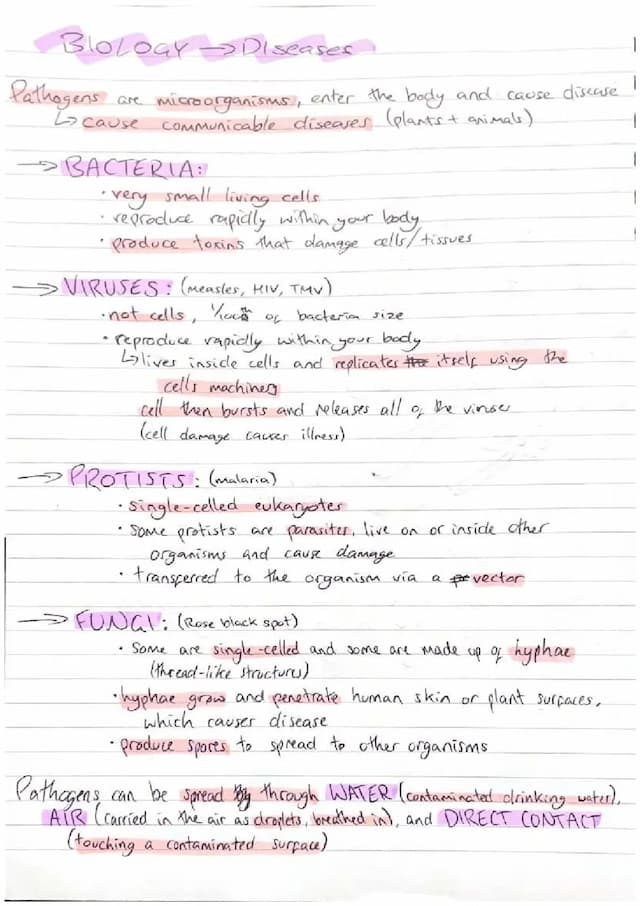 Biology → Diseases
Pathogens are microorganisms, enter the body and cause disease
↳ cause communicable diseases (plants + animals)
→ BACTERIA:
· very small living cells
· reproduce rapidly within your body
· produce toxins that damage cells/tissues
→ VIRUSES: (measles, HIV, TMV)
· not cells, 1/100th of bacteria size
· reproduce rapidly within your body
↳ lives inside cells and replicates itself using the
cells machinery
cell then bursts and releases all of the virus
(cell damage causes illness)
→ PROTISTS: (malaria)
· single-celled eukaryotes
· some protists are parasites, live on or inside other
organisms and cause damage
· transferred to the organism via a vector
→ FUNGI: (Rose black spot)
· Some are single-celled and some are made up of hyphae
(thread-like structures)
· hyphae grow and penetrate human skin or plant surfaces,
which causes disease
· produce spores to spread to other organisms
Pathogens can be spread through WATER (contaminated drinking water),
AIR (carried in the air as droplets, breathed in), and DIRECT CONTACT
(touching a contaminated surface)